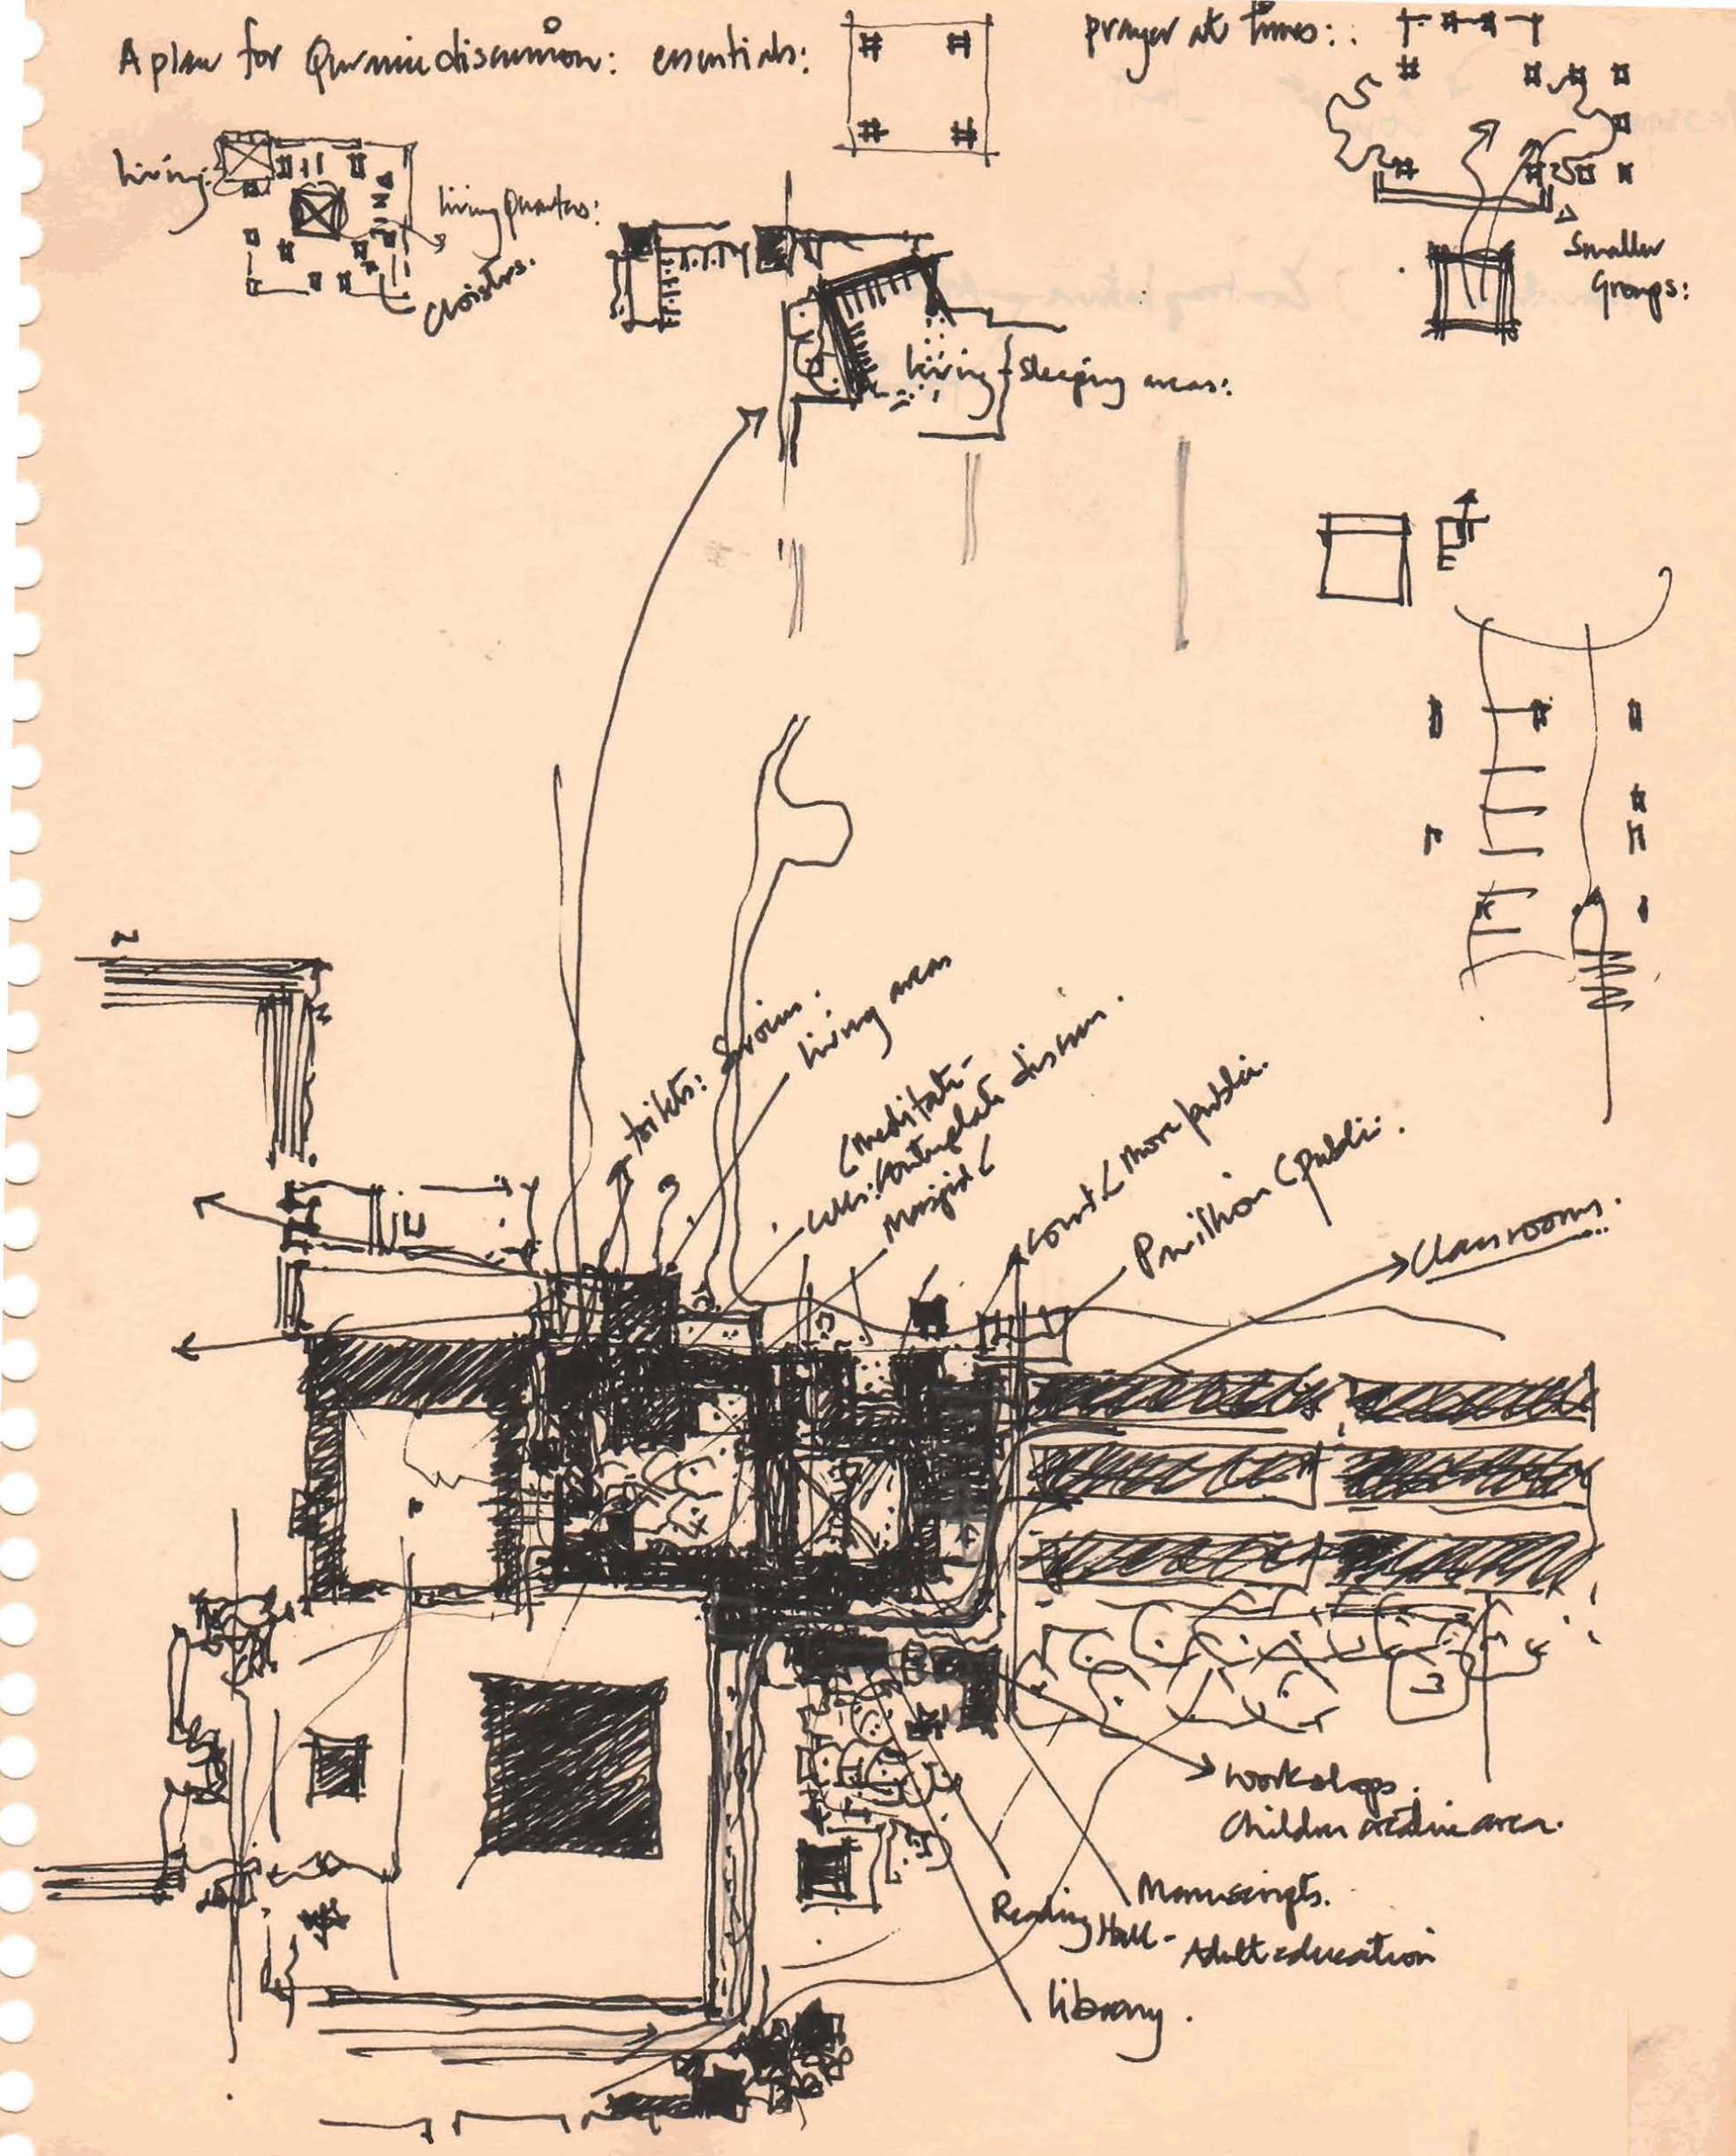 A plan for Quranic discussion: essentials:
prayer at times:
living:
living quarters:
cloisters.
Smaller
Groups:
living + sleeping areas:
toilets: Services:
living areas
(meditate-
cells: contemplate discuss.
Masjid (
court ( more public.
Pavillion (public.
Classrooms.
workshops.
Children creative area.
Manuscripts.
Reading Hall -
Adult education
library.